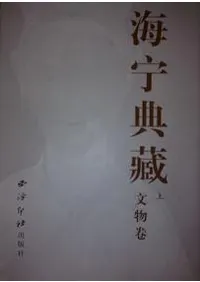 海宁典藏
上
文物卷
西泠印社出版社